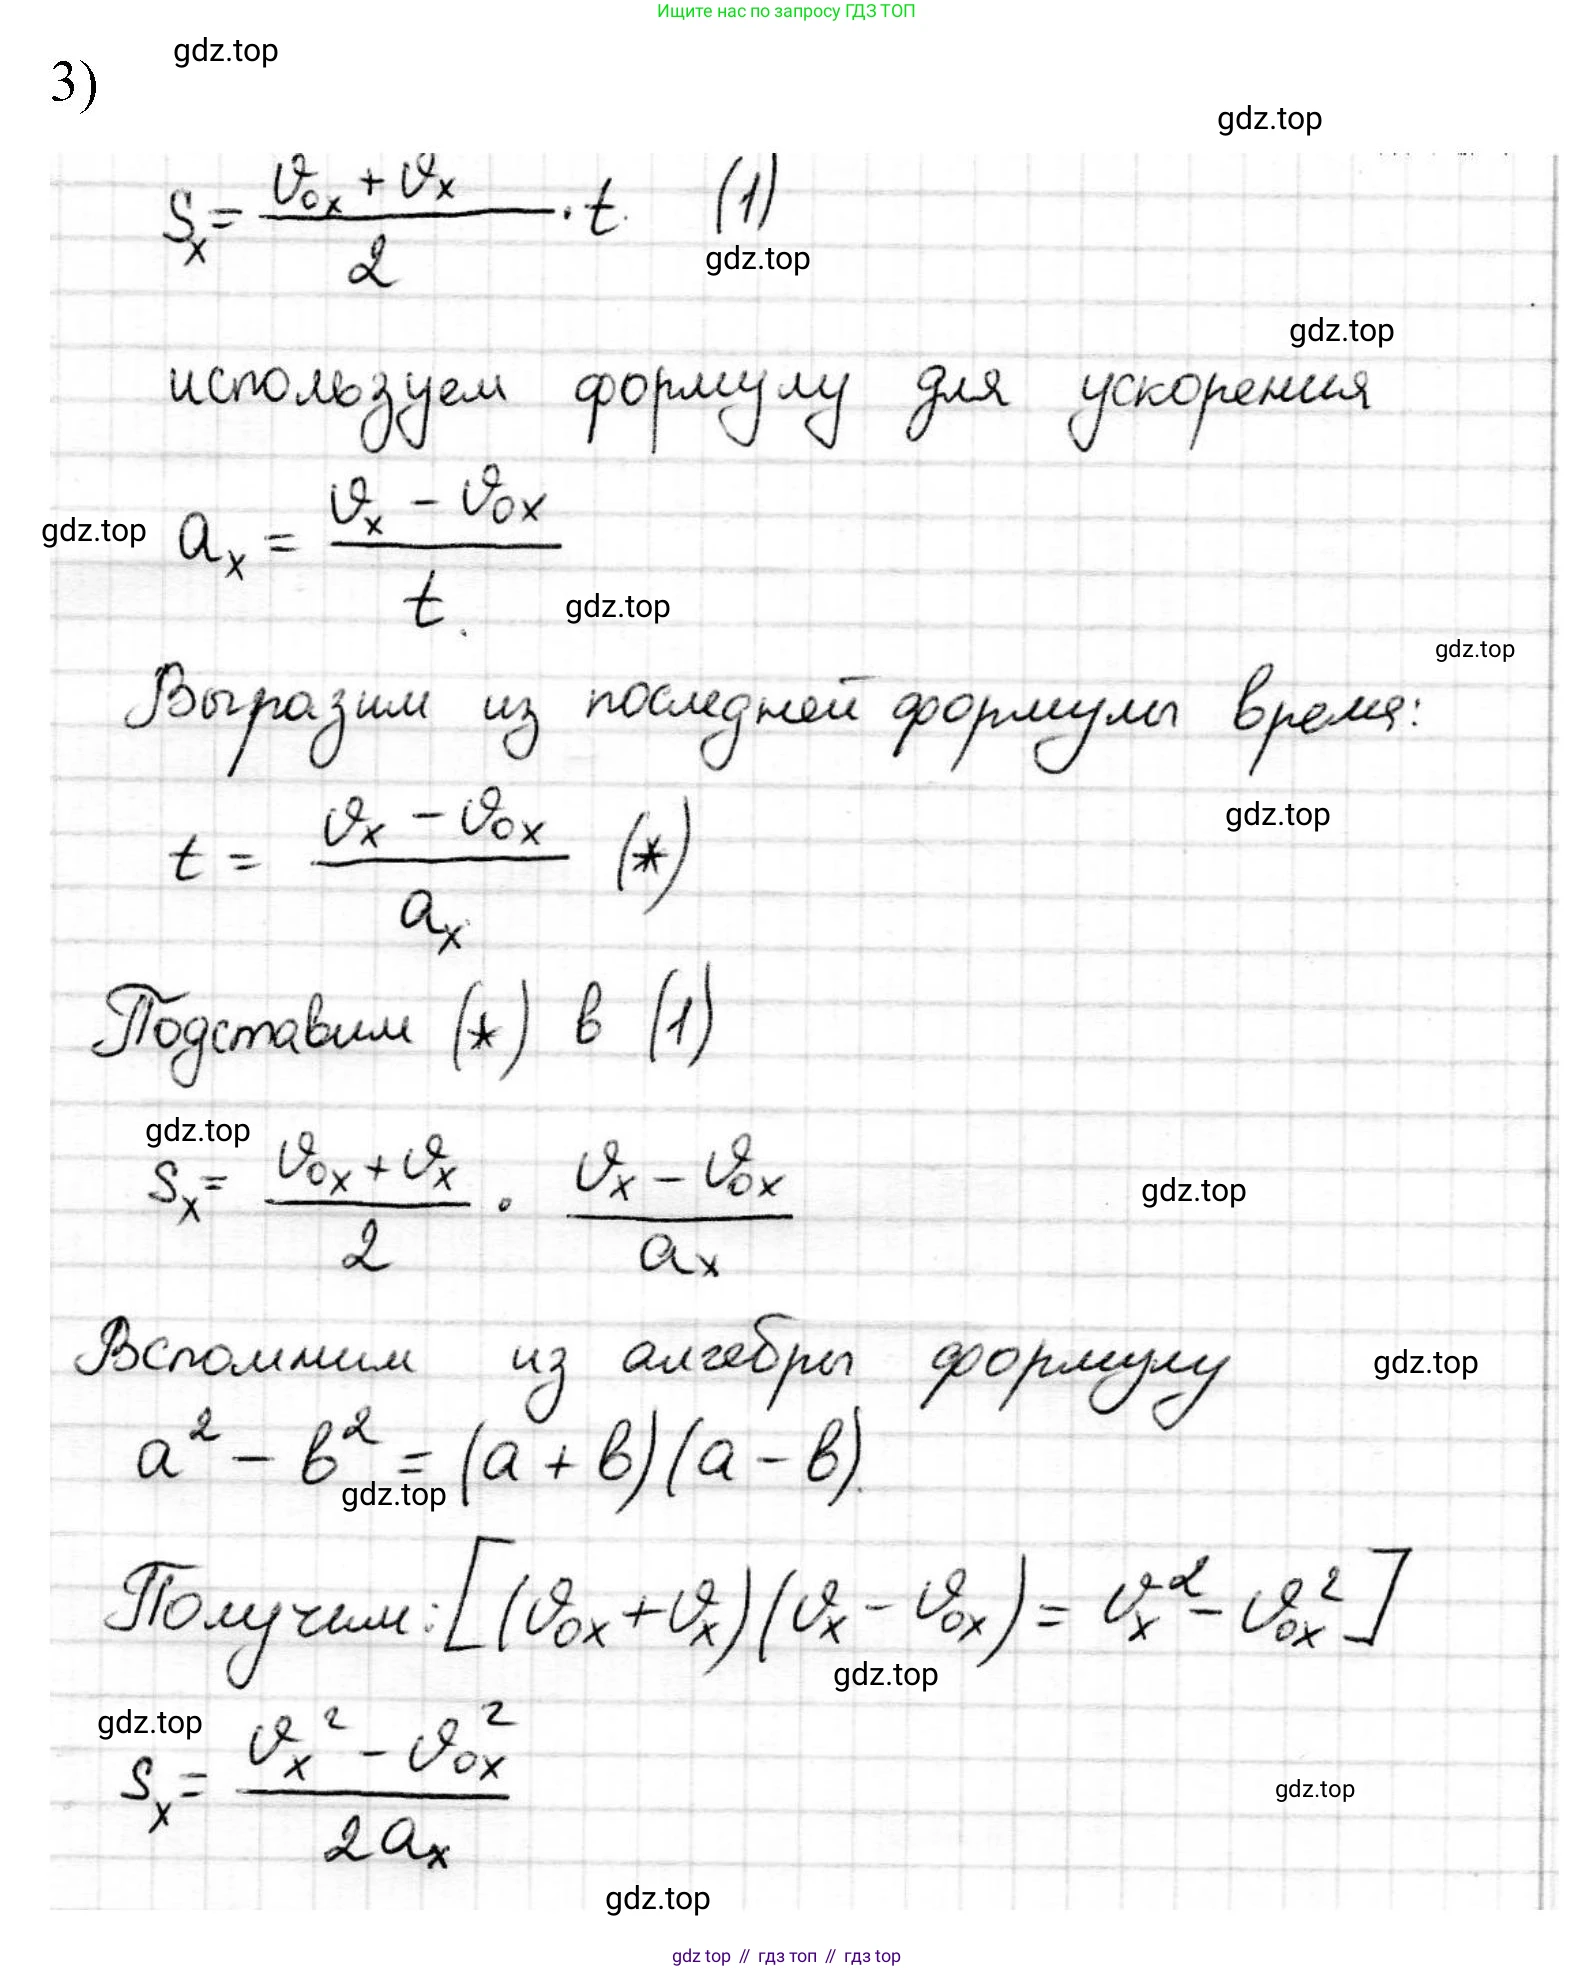 Ищите нас по запросу ГДЗ ТОП
gdz.top
3)
gdz.top
Sₓ = (υ₀ₓ + υₓ)/2 · t. (1)
gdz.top
gdz.top
используем формулу для ускорения
gdz.top
aₓ = (υₓ − υ₀ₓ)/t.
gdz.top
gdz.top
Выразим из последней формулы время:
gdz.top
t = (υₓ − υ₀ₓ)/aₓ (*)
Подставим (*) в (1)
gdz.top
Sₓ = (υ₀ₓ + υₓ)/2 · (υₓ − υ₀ₓ)/aₓ
gdz.top
Вспомним из алгебры формулу
gdz.top
a² − b² = (a + b)(a − b).
gdz.top
Получим: [(υ₀ₓ + υₓ)(υₓ − υ₀ₓ) = υₓ² − υ₀ₓ²]
gdz.top
gdz.top
Sₓ = (υₓ² − υ₀ₓ²)/2aₓ
gdz.top
gdz.top
gdz top // гдз топ // гдз top